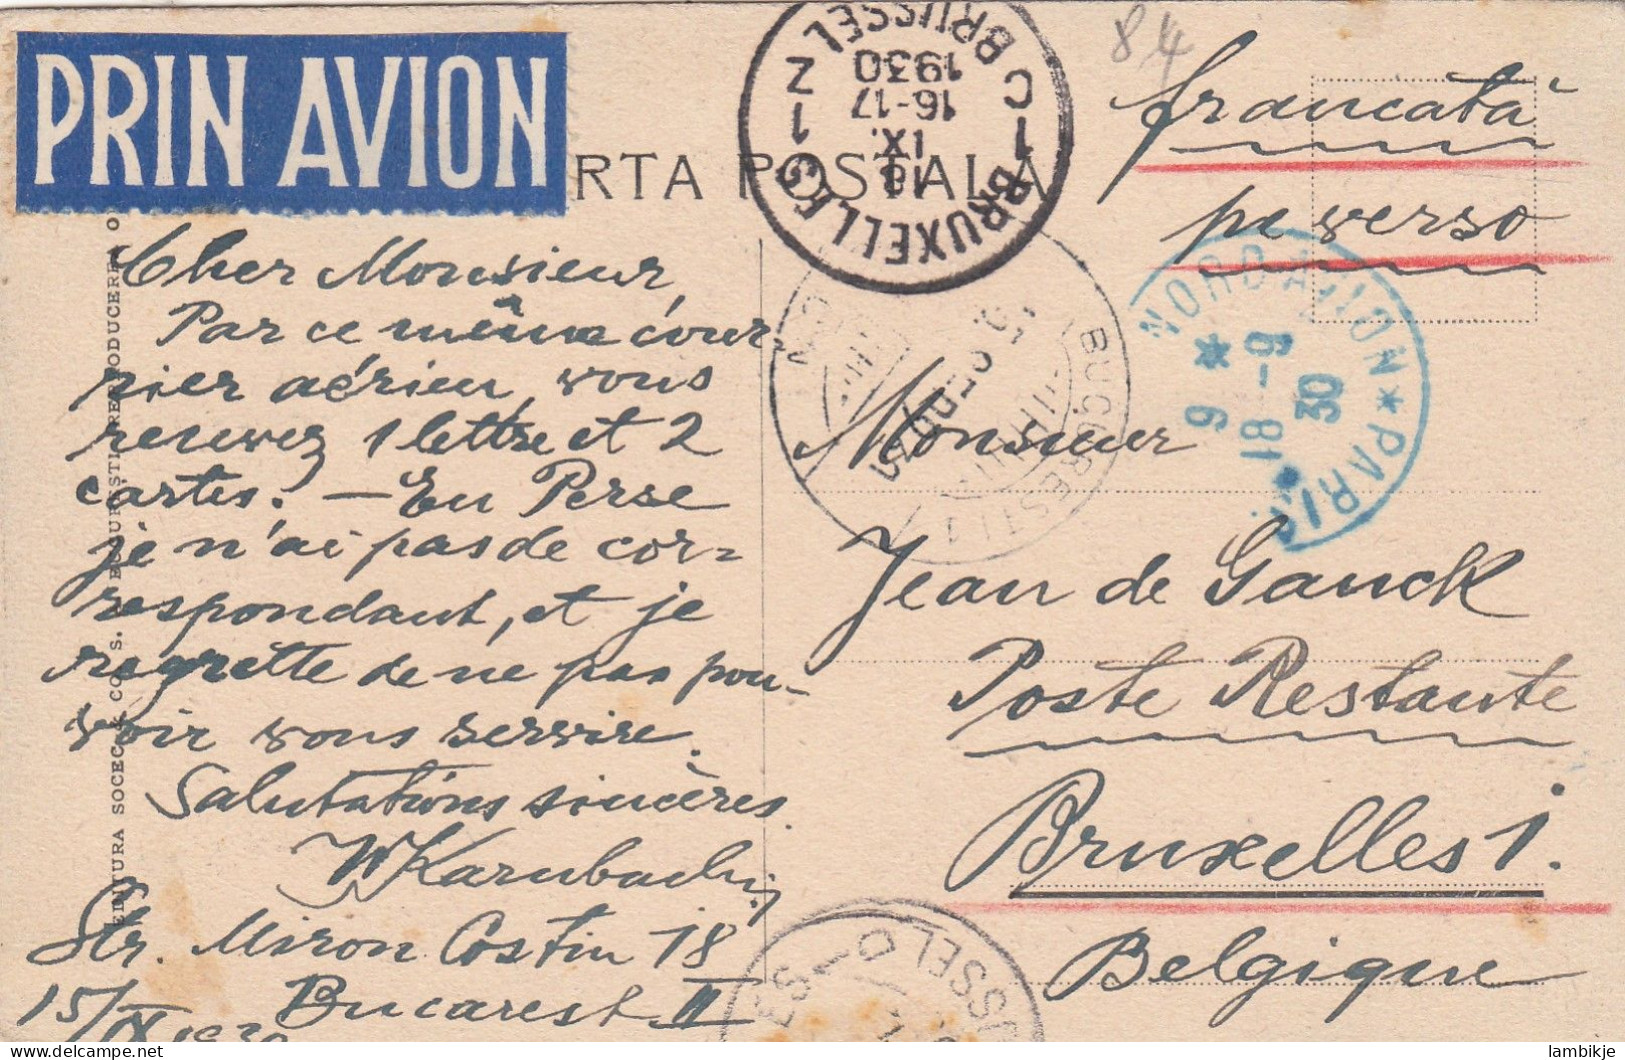 PRIN AVION
RTA POSTALA
84
francată
pe verso
BRUXELLES
BRUSSEL
1 C
1 Z
18
IX.
16-17
1930
NORD AVION * PARIS
9 *
18 -9
30
BUCUREȘTI
Cher Monsieur,
Par ce même cour
rier aérien, vous
recevez 1 lettre et 2
cartes. — En Perse
je n'ai pas de cor=
respondant, et je
regrette de ne pas pou-
voir vous servire.
Salutations sincères.
WKarnbach
Str. Miron Costin 18
Bucarest II
15/IX 1930
Monsieur
Jean de Ganck
Poste Restante
Bruxelles 1.
Belgique
SSEL D
EDITURA SOCEC & CO. S.
REPRODUCEREA O
lambikje